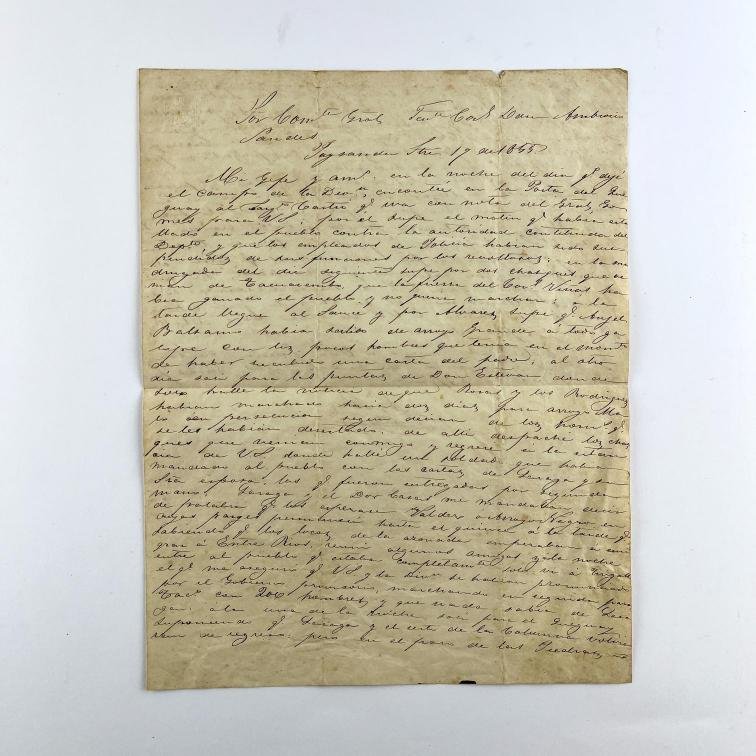 Sor Comte Gral Tente Corl Don Ambrosio
Sandes
Paysandú Stre 17 de 1855
Mi Gefe y amo en la noche del dia q.e dejé
el campo de la Devn encontré en la Posta del Que
guay al Castro q.e iva con nota del Gral
para VS; por el supe el motin q.e habia esta
llado en el pueblo contra la autoridad constituida del
Depto, y que los empleados de Policia habian sido sus
pendidos de sus funciones por los revoltosos; en la ma
drugada del dia siguente supe por dos chasques que ve
nian de que la fuerza del Corl ha
bia ganado el pueblo y no quiere marchar; a la
tarde llegue al Sauce y por Alvarez supe q.e Angel
Balsamo habia salido de arroyo Grande a todo ga
lope con los pocos hombres que tenia en el momto
de haber recibido una carta del padre; al otro
dia sali para las puntas de Don Estevan donde
solo halle la noticia de que Rosas y los Rodriguez
habian marchado hacia dos dias para arroyo Ma
lo en persecucion segun decian de los homs q.e
se les habian desertado: de alli despaché los chas
ques que venian conmigo y regresé a la estan
cia de VS donde hallé un soldado que habia
mandado al pueblo con las cartas de Faraga y su
Sra esposa, las q.e fueron entregadas por segunda
mano, Faraga y el Dor Casas me mandaban decir
de palabra q.e los esperase Valdez o Arroyo Negro en
cuyos parages permaneci hasta el quince a la tarde q.e
sabiendo q.e los locos de la asonada empesaban a emi
grar a Entre Rios, reuni algunos amigos y a la noche
entré al pueblo q.e estaba completamente solo, vi a
el q.e me aseguró q.e VS y la Divn se habian pronunciado
por el Gobierno provisorio, marchando en seguida para
Tacó con 200 hombres, y que nada sabia de Fara
ga: a la una de la noche sali para el Queguay
suponiendo q.e Faraga y el resto de la Columna vol
rian de regreso; pero en el paso de las Piedras